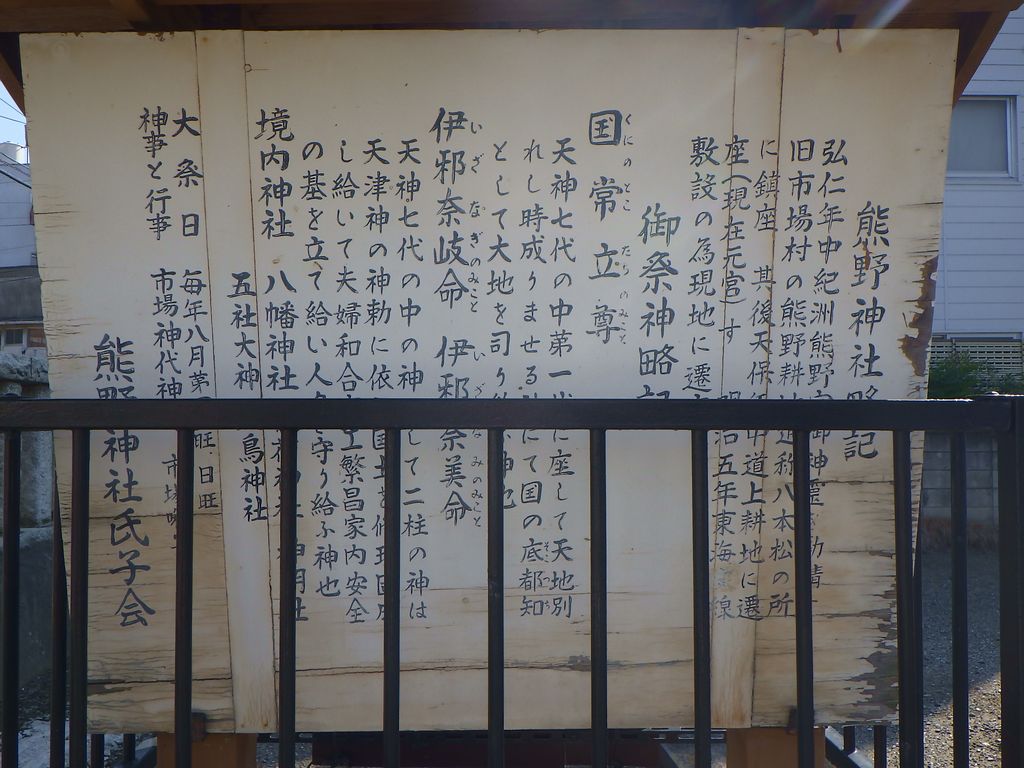 熊野神社略記
弘仁年中紀洲熊野 御神霊 勧請
旧市場村の熊野耕地 通称八本松の所
に鎮座 其後天保年中道上耕地に遷
座(現在元宮)す 明治五年東海道線
敷設の為現地に遷
御祭神略記
国常立尊
くにのとこたちのみこと
天神七代の中第一 に座して天地別
れし時成りませる にて国の底都知
として大地を司り 神也
伊邪奈岐命 伊邪奈美命
いざなぎのみこと いざなみのみこと
天神七代の中の神 して二柱の神は
天津神の神勅に依
し給いて夫婦和合 繁昌家内安全
の基を立て給い人 守り給ふ神也
境内神社 八幡神社 神明社
五社大神 鳥神社
大祭日 毎年八月第 日旺
神事と行事 市場神代神 市場
熊野神社氏子会